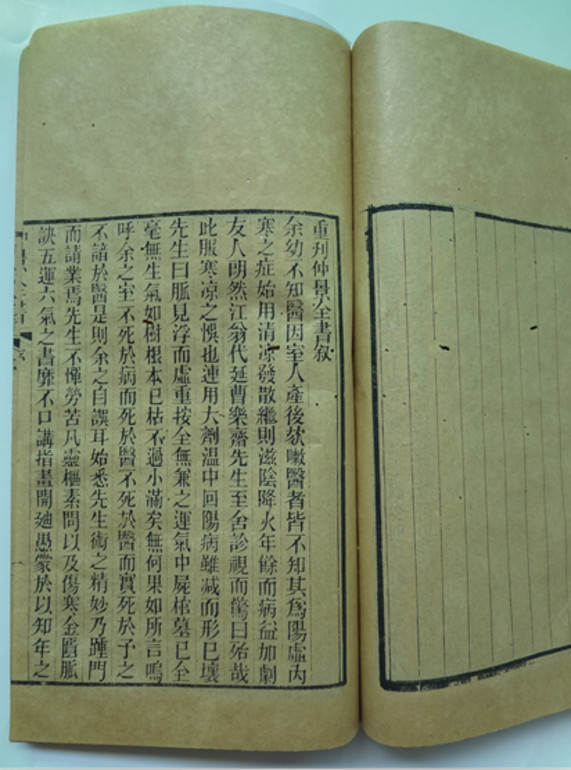 重刋仲景全書叙
余幼不知醫因室人產後欬嗽醫者皆不知其爲陽虛内
寒之症始用清凉發散繼則滋陰降火年餘而病益加劇
友人朗然江翁代延曹樂齋先生至舍診視而驚曰殆哉
此服寒凉之悞也連用大劑温中回陽病雖减而形巳壞
先生曰脈見浮而虛重按全無兼之運氣中屍棺墓已全
毫無生氣如樹根本已枯不過小滿矣無何果如所言嗚
呼余之室不死於病而死於醫不死於醫而實死於予之
不諳於醫是則余之自誤耳始悉先生術之精妙乃踵門
而請業焉先生不憚勞苦凡靈樞素問以及傷寒金匱脈
訣五運六氣之書靡不口講指畫開廸愚蒙於以知年之